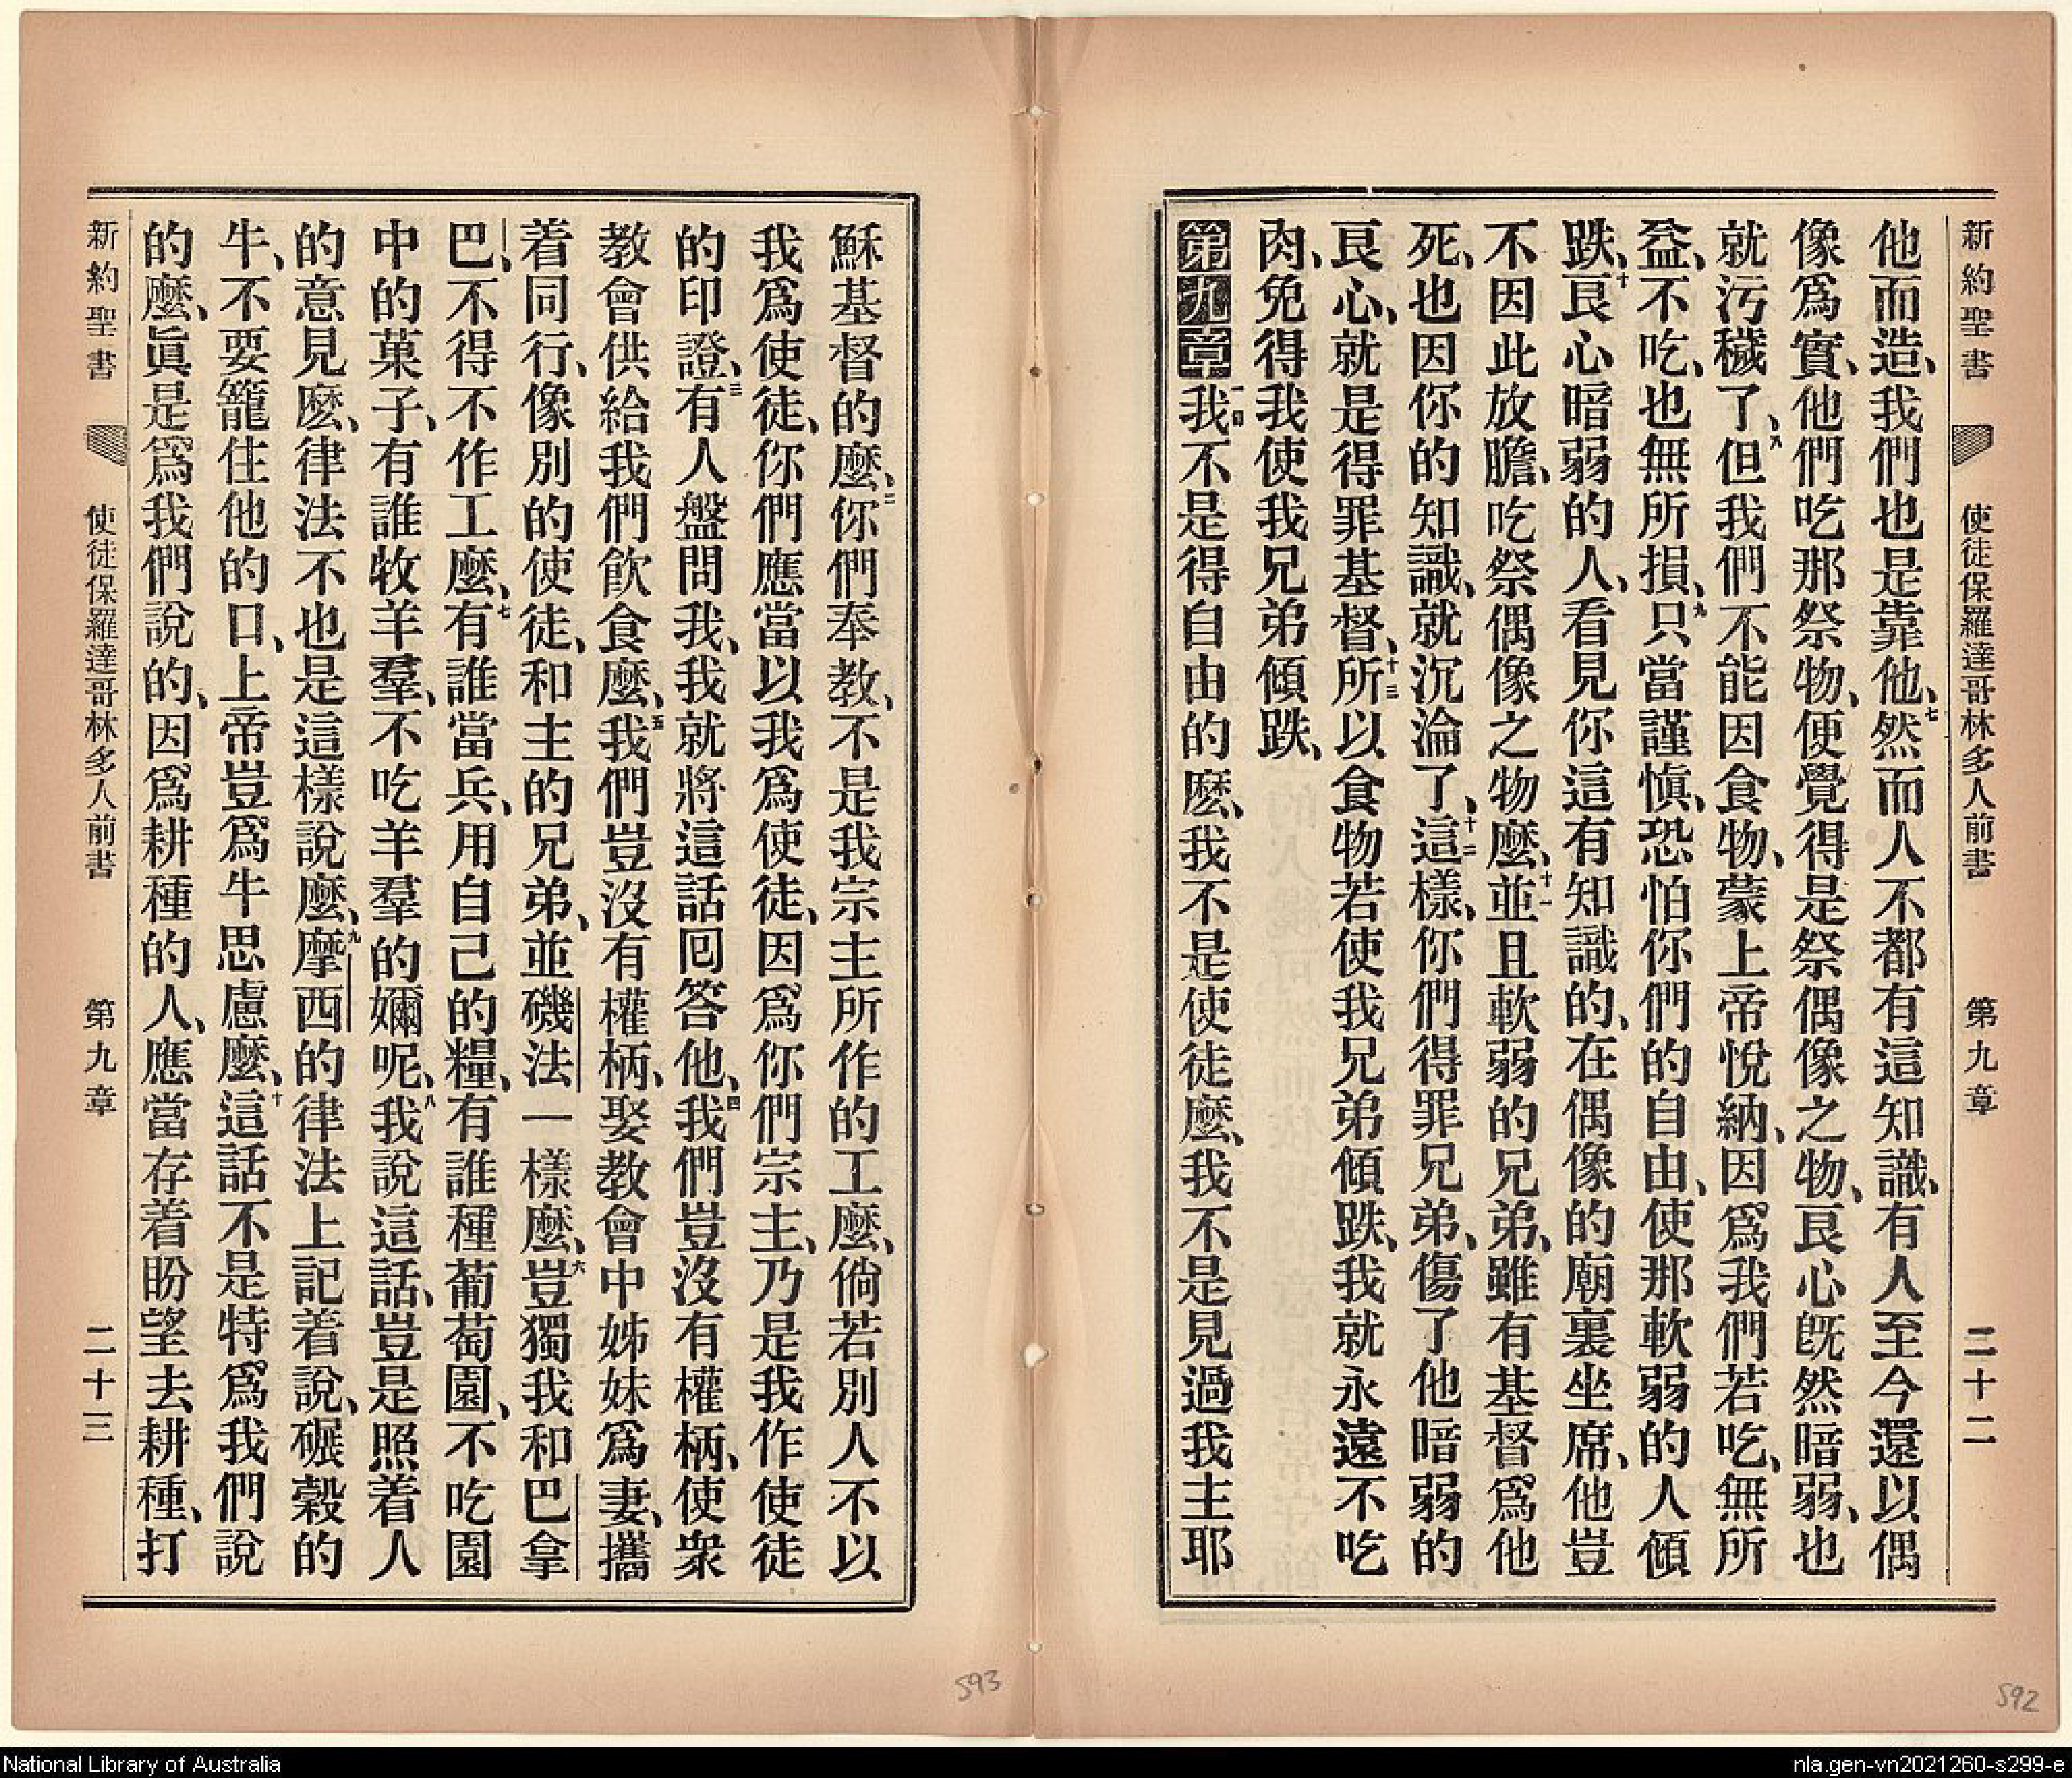 新約聖書 使徒保羅達哥林多人前書 第九章 二十二
他而造、我們也是靠他、七然而人不都有這知識、有人至今還以偶
像爲實、他們吃那祭物、便覺得是祭偶像之物、艮心旣然暗弱、也
就污穢了、八但我們不能因食物、蒙上帝悅納、因爲我們若吃、無所
益、不吃、也無所損、九只當謹愼、恐怕你們的自由、使那軟弱的人傾
跌、十艮心暗弱的人、看見你這有知識的、在偶像的廟裏坐席、他豈
不因此放膽、吃祭偶像之物麼、十一並且軟弱的兄弟、雖有基督爲他
死、也因你的知識、就沉淪了、十二這樣、你們得罪兄弟、傷了他暗弱的
艮心、就是得罪基督、十三所以食物若使我兄弟傾跌、我就永遠不吃
肉、免得我使我兄弟傾跌、
第九章 一我不是得自由的麼、我不是使徒麼、我不是見過我主耶
穌基督的麼、二你們奉教、不是我宗主所作的工麼、倘若別人不以
我爲使徒、你們應當以我爲使徒、因爲你們宗主、乃是我作使徒
的印證、三有人盤問我、我就將這話回答他、四我們豈沒有權柄、使衆
教會供給我們飮食麼、五我們豈沒有權柄、娶教會中姊妹爲妻、攜
着同行、像別的使徒、和主的兄弟、並磯法一樣麼、六豈獨我和巴拿
巴、不得不作工麼、七有誰當兵、用自己的糧、有誰種葡萄園、不吃園
中的菓子、有誰牧羊羣、不吃羊羣的嬭呢、八我說這話、豈是照着人
的意見麼、律法不也是這樣說麼、九摩西的律法上記着說、碾穀的
牛、不要籠住他的口、上帝豈爲牛思慮麼、十這話不是特爲我們說
的麼、眞是爲我們說的、因爲耕種的人、應當存着盼望去耕種、打
新約聖書 使徒保羅達哥林多人前書 第九章 二十三
593
592
National Library of Australia
nla.gen-vn2021260-s299-e